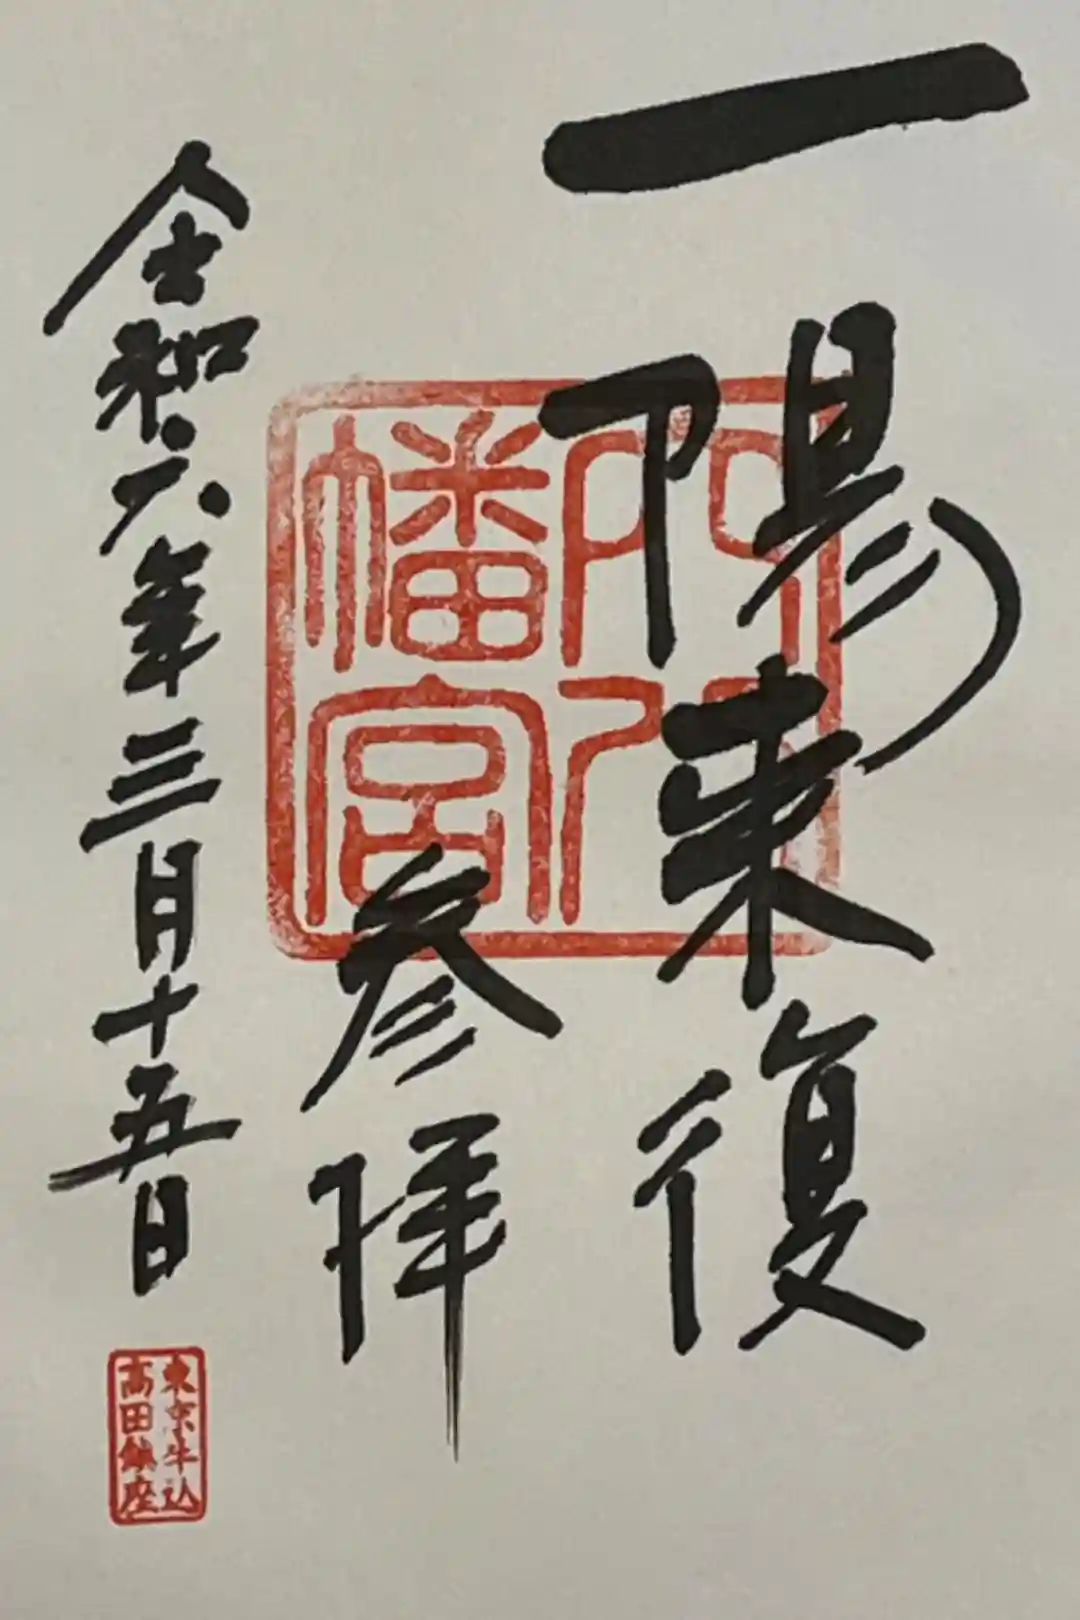 一陽来復
参拝
令和六年三月十五日
穴八
幡宮
東京牛込
高田鎮座